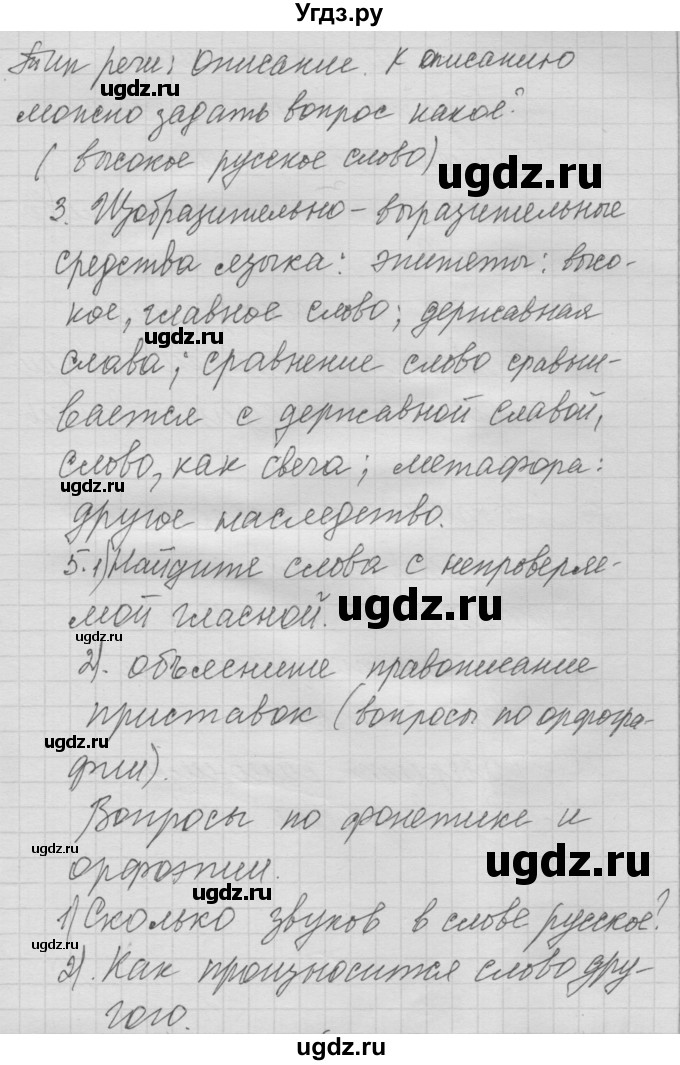 Угдз.ру
Тип речи: описание. К описанию
ugdz.ru
можно задать вопрос какое?
(высокое русское слово)
ugdz.ru
3. Изобразительно-выразительные
средства языка: эпитеты: высо-
кое, главное слово; державная
ugdz.ru
слава; сравнение слово сравни-
вается с державной славой,
слово, как свеча; метафора:
ugdz.ru
другое наследство.
5. 1) Найдите слова с непроверяе-
мой гласной.
ugdz.ru
ugdz.ru
2). объясните правописание
приставок (вопросы по орфогра-
ugdz.ru
фии).
Вопросы по фонетике и
ugdz.ru
ugdz.ru
орфоэпии.
ugdz.ru
1) Сколько звуков в слове русское?
ugdz.ru
2). Как произносится слово дру-
гого.
ugdz.ru